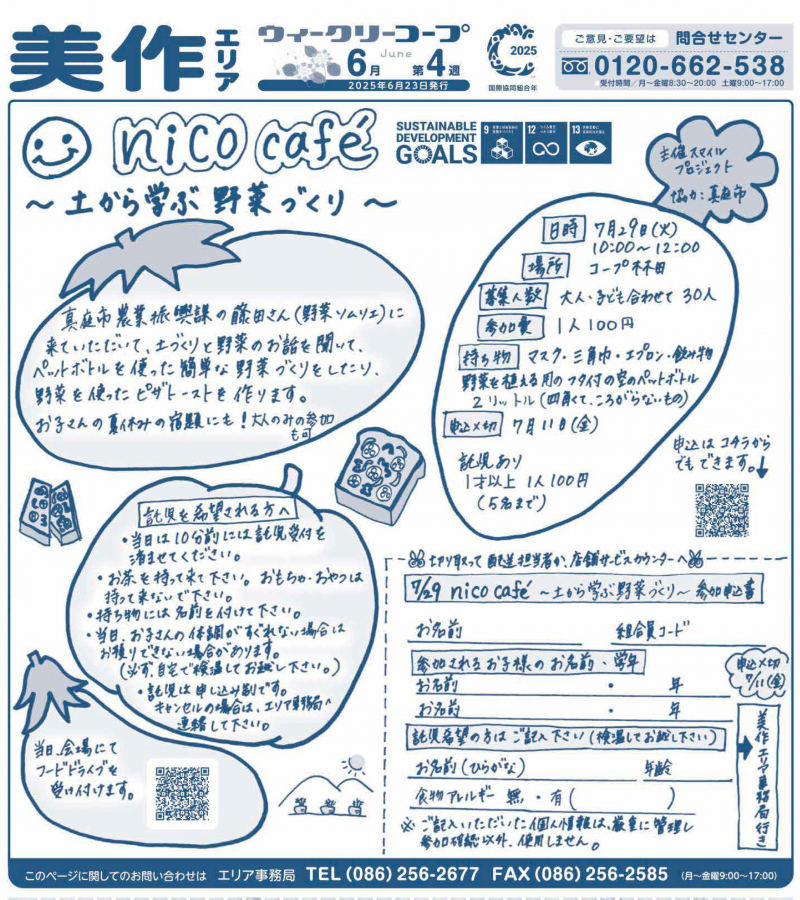 美作エリア
ウィークリーコープ
June
6月 第4週
2025年6月23日発行
2025
国際協同組合年
ご意見・ご要望は 問合せセンター
0120-662-538
●受付時間／月～金曜8:30～20:00 土曜9:00～17:00
nico café
SUSTAINABLE
DEVELOPMENT
GOALS
9
12
13
～土から学ぶ野菜づくり～
主催スマイル
プロジェクト
協力：真庭市
真庭市農業振興課の藤田さん(野菜ソムリエ)に
来ていただいて、土づくりと野菜のお話を聞いて、
ペットボトルを使った簡単な野菜づくりをしたり、
野菜を使ったピザトーストを作ります。
お子さんの夏休みの宿題にも！大人のみの参加
も可
日時 7月29日(火)
10:00～12:00
場所 コープ林田
募集人数 大人・子ども合わせて30人
参加費 1人100円
持ち物 マスク・三角巾・エプロン・飲み物
野菜を植える用のフタ付の空のペットボトル
2リットル(四角くて、ころがらないもの)
申込〆切 7月11日(金)
託児あり
1才以上 1人100円
(5名まで)
申込はコチラから
でもできます。↓
託児を希望される方へ
・当日は10分前には託児受付を
済ませてください。
・お茶を持って来て下さい。おもちゃ・おやつは
持って来ないで下さい。
・持ち物には名前を付けて下さい。
・当日、お子さんの体調がすぐれない場合は
お預りできない場合があります。
(必ず、自宅で検温してお越し下さい。)
・託児は申し込み制です。
キャンセルの場合は、エリア事務局へ
連絡して下さい。
当日、会場にて
フードドライブを
受け付けます。
切り取って配送担当者か、店舗サービスカウンターへ
7/29 nico café ～土から学ぶ野菜づくり～ 参加申込書
お名前 組合員コード
参加されるお子様のお名前・学年
お名前 ・ 年
お名前 ・ 年
申込〆切
7/11(金)
託児希望の方はご記入下さい(検温してお越し下さい)
お名前(ひらがな) 年齢
食物アレルギー 無・有( )
美作エリア事務局行き
※ご記入いただいた個人情報は、厳重に管理し
参加確認以外、使用しません。
このページに関してのお問い合わせは エリア事務局 TEL (086) 256-2677 FAX (086) 256-2585 (月～金曜9:00～17:00)